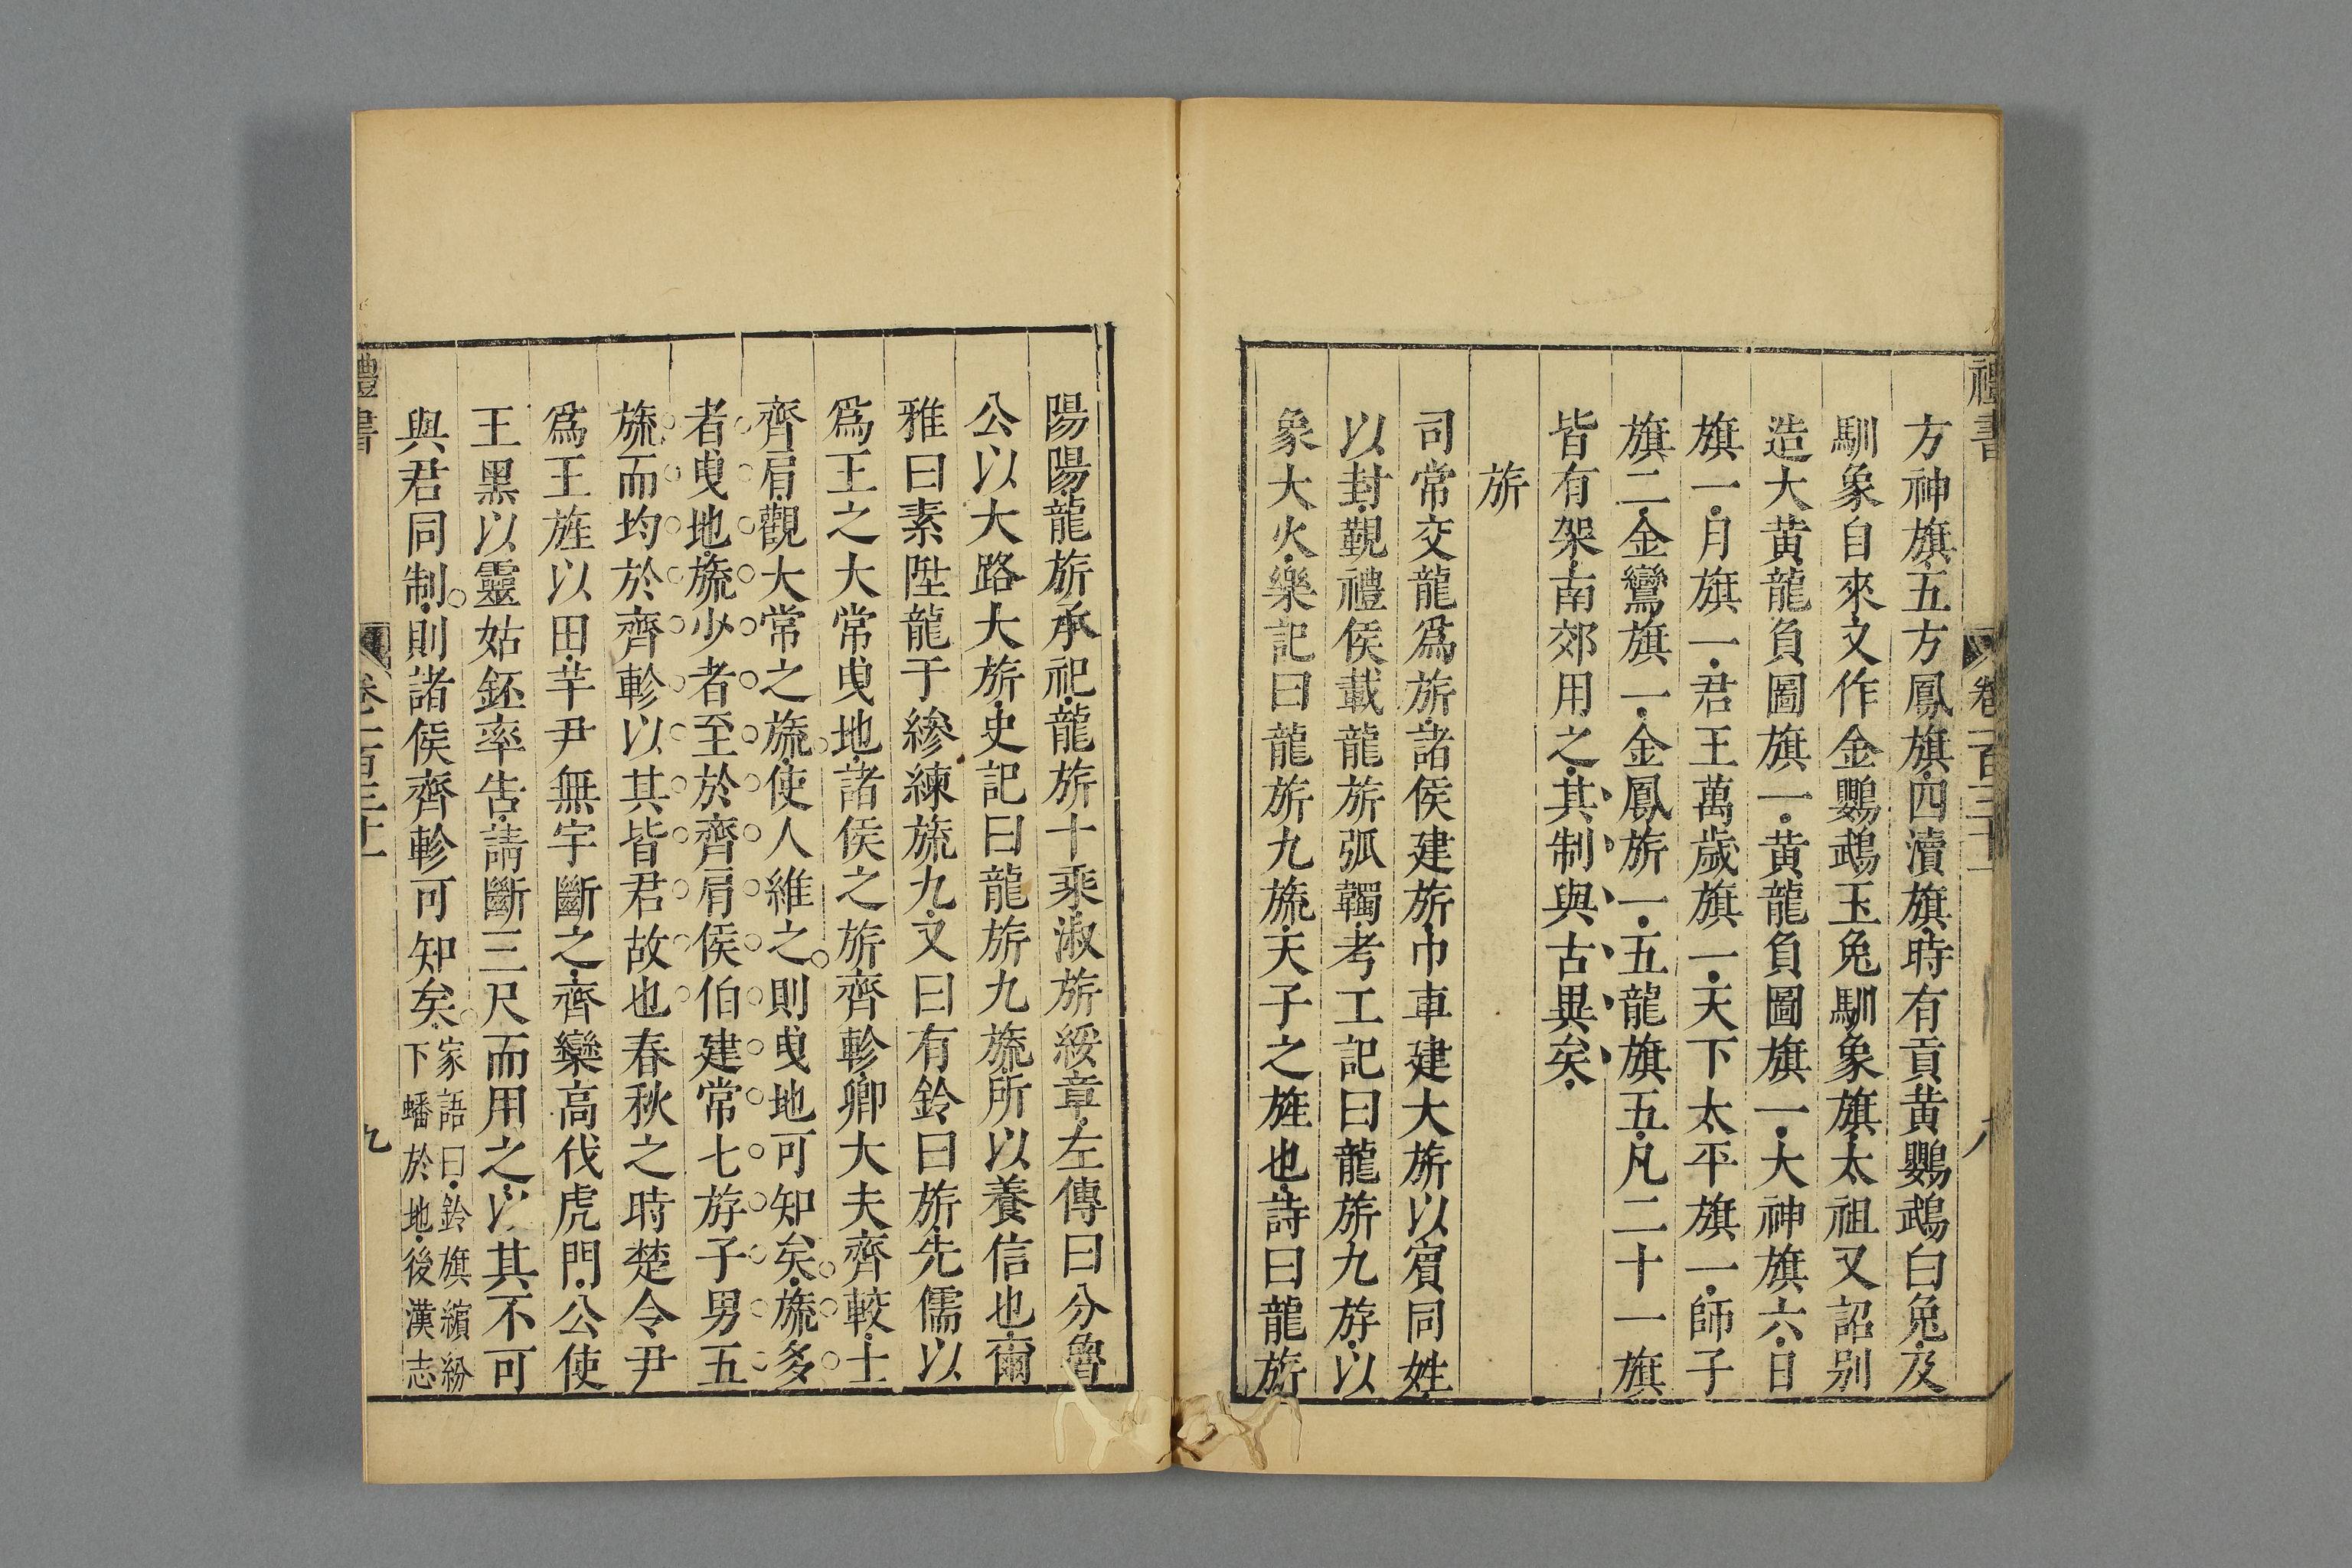 禮書 卷一百三十一 八
方神旗五方鳳旗四瀆旗時有貢黄鸚鵡白兔及
馴象自來文作金鸚鵡玉兔馴象旗太祖又詔别
造大黄龍負圖旗一黄龍負圖旗一大神旗六日
旗一月旗一君王萬歲旗一天下太平旗一師子
旗二金鸞旗一金鳳旂一五龍旗五凡二十一旗
皆有架南郊用之其制與古異矣
旂
司常交龍爲旂諸侯建旂巾車建大旂以賓同姓
以封覲禮侯載龍旂弧韣考工記曰龍旂九斿以
象大火樂記曰龍旂九旒天子之旌也詩曰龍旂
陽陽龍旂承祀龍旂十乘淑旂綏章左傳曰分魯
公以大路大旂史記曰龍旂九旒所以養信也爾
雅曰素陞龍于縿練旒九又曰有鈴曰旂先儒以
爲王之大常曳地諸侯之旂齊軫卿大夫齊較士
齊肩觀大常之旒使人維之則曳地可知矣旒多
者曳地旒少者至於齊肩侯伯建常七斿子男五
旒而均於齊軫以其皆君故也春秋之時楚令尹
爲王旌以田芋尹無宇斷之齊欒高伐虎門公使
王黑以靈姑銔率吿請斷三尺而用之以其不可
與君同制則諸侯齊軫可知矣家語曰鈴旗繽紛
下蟠於地後漢志
禮書 卷一百三十一 九